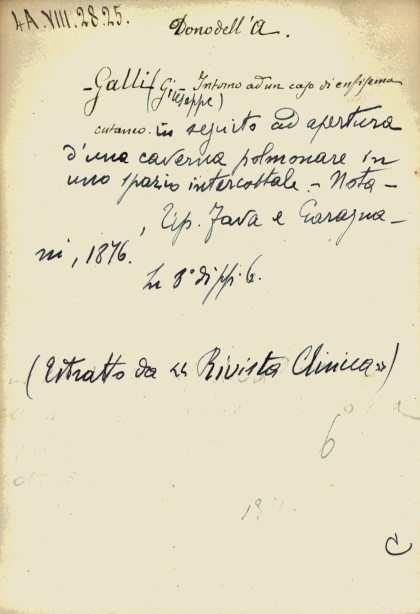 4A.VIII.28.25.
Dono dell'A.
- Galli (Giuseppe) - Intorno ad un caso di enfisema
cutaneo. in seguito ad apertura
d'una caverna polmonare in
uno spazio intercostale. - Nota -
, Tip. Fava e Garagna-
ni, 1876.
In 8° di pp. 6.
(Estratto da « Rivista Clinica »)
6°
C